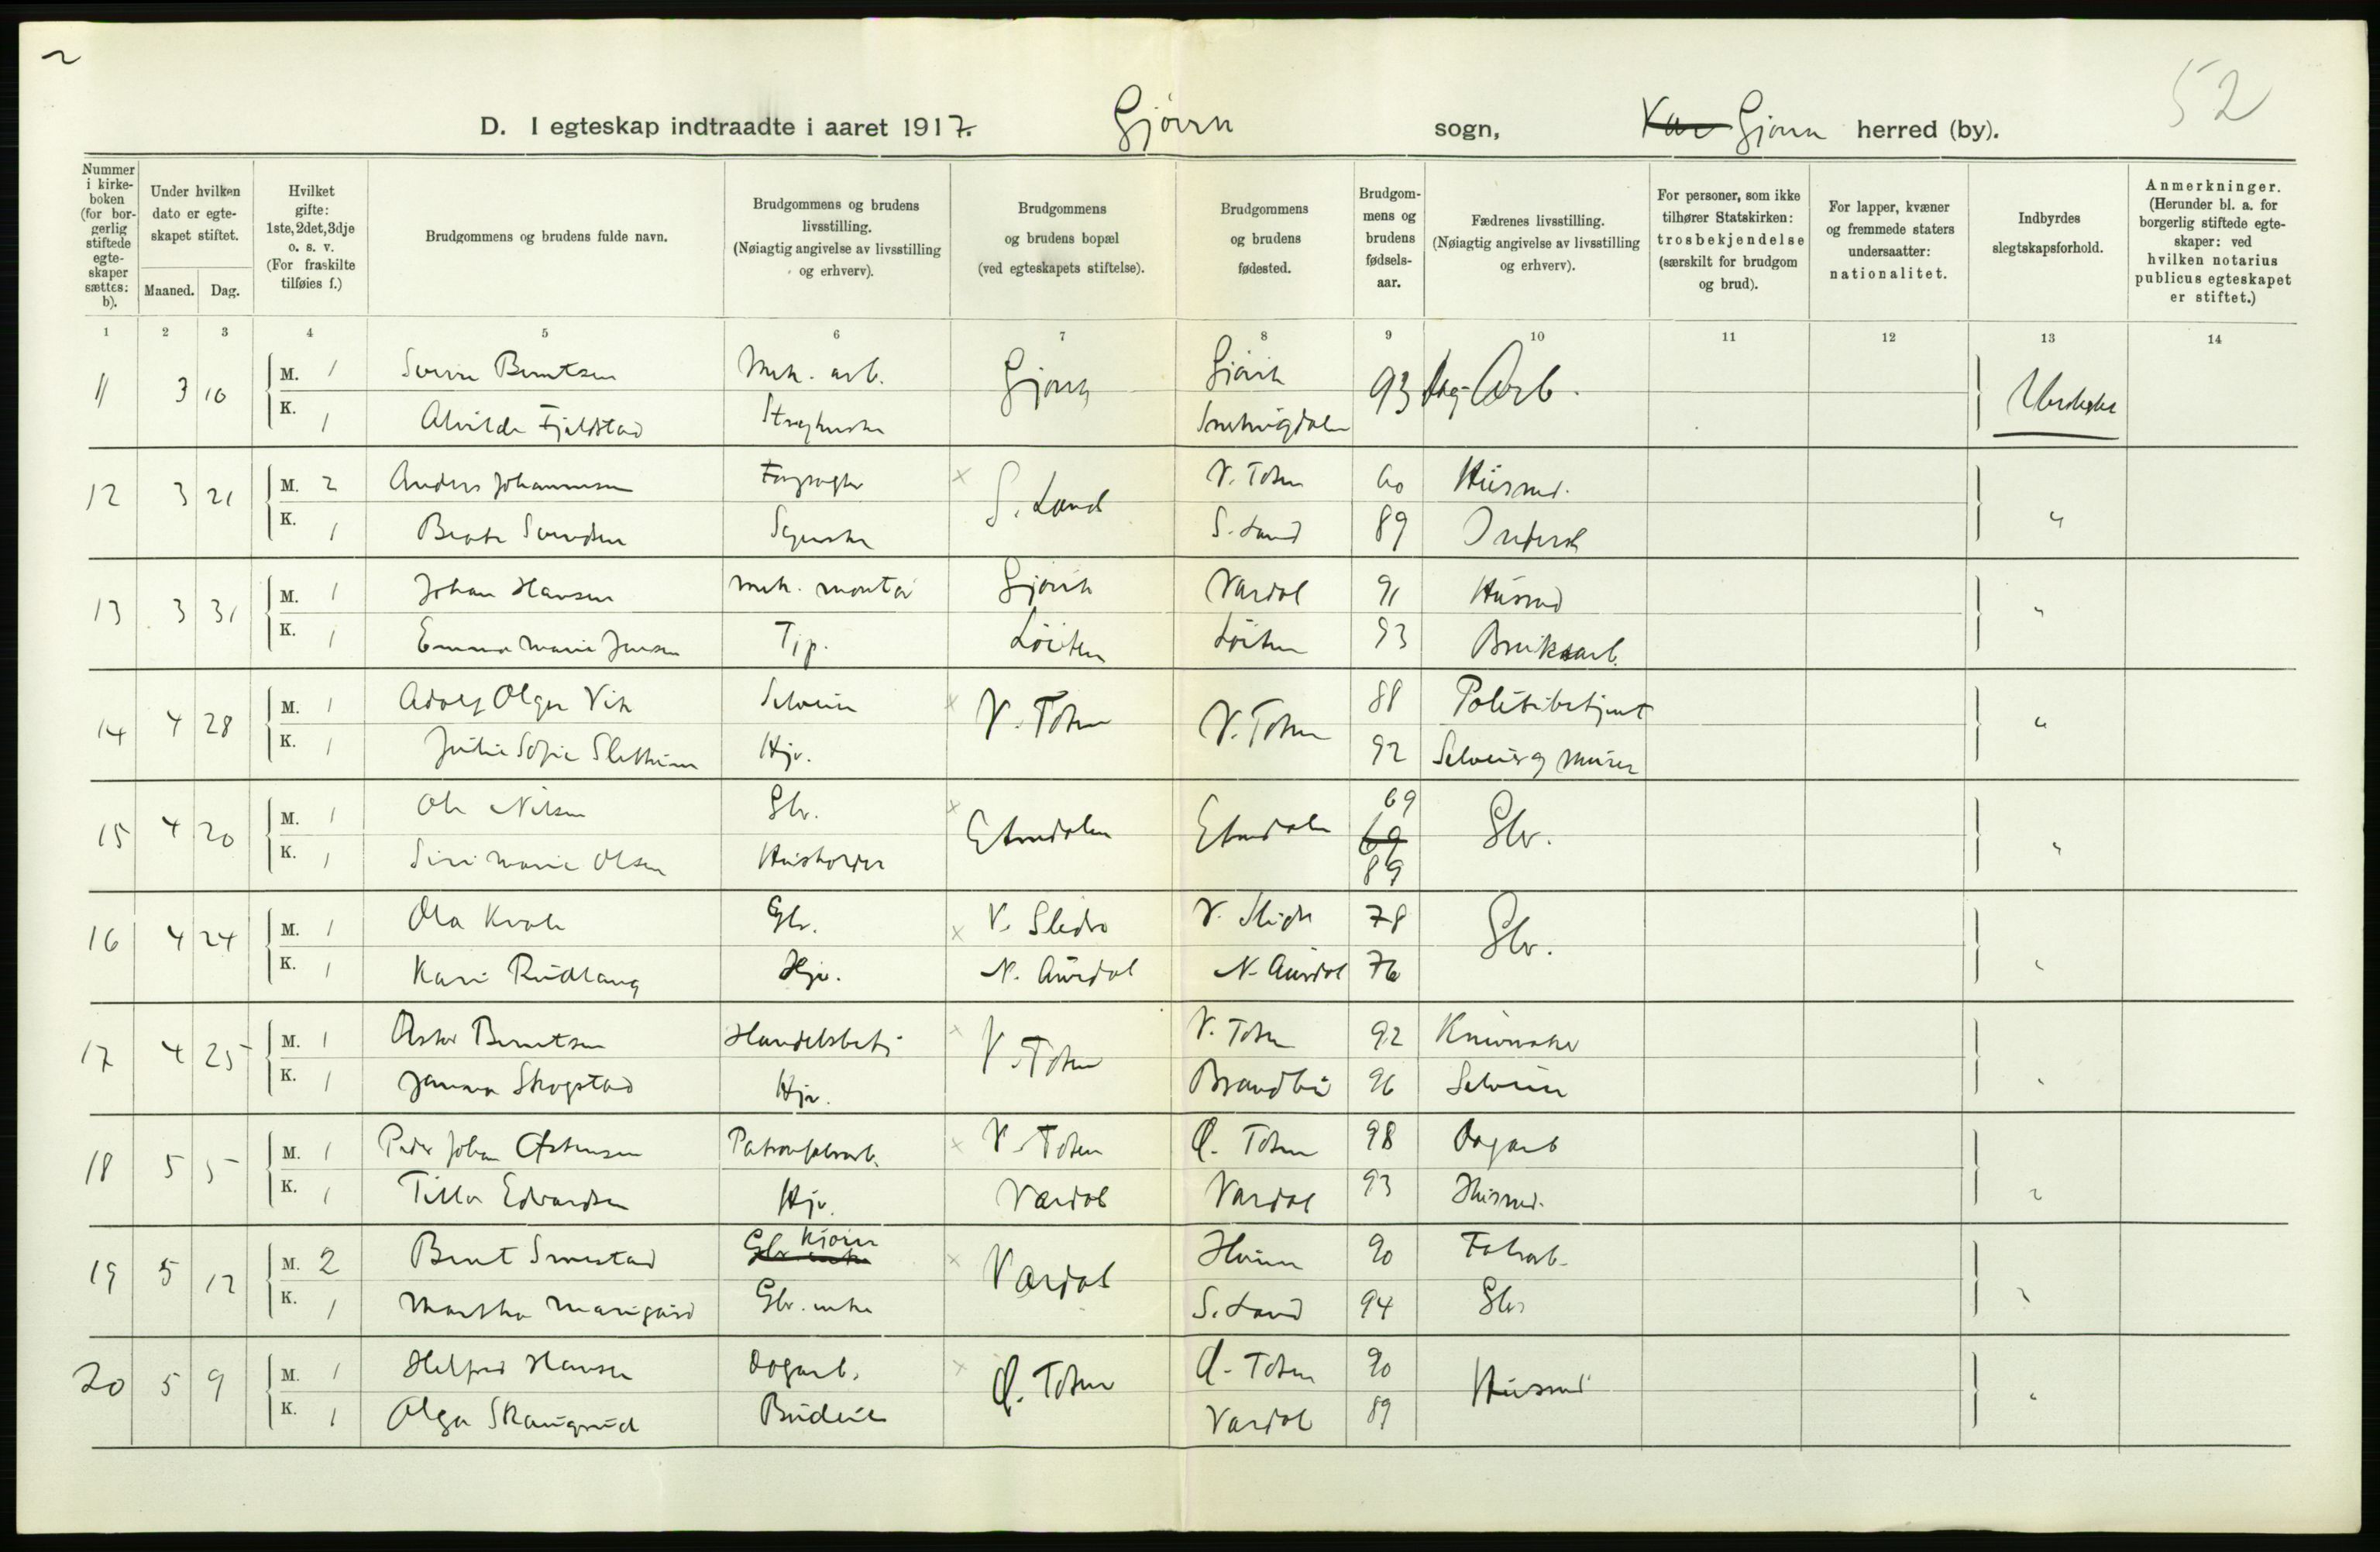 52
D. I egteskap indtraadte i aaret 1917. Gjøvik sogn, Gjøvik herred (by).
Nummer i kirkeboken (for borgerlig stiftede egteskaper sættes: b).
Under hvilken dato er egteskapet stiftet.
Maaned. Dag.
Hvilket gifte: 1ste, 2det, 3dje o. s. v. (For fraskilte tilføies f.)
Brudgommens og brudens fulde navn.
Brudgommens og brudens livsstilling. (Nøiagtig angivelse av livsstilling og erhverv).
Brudgommens og brudens bopæl (ved egteskapets stiftelse).
Brudgommens og brudens fødested.
Brudgommens og brudens fødselsaar.
Fædrenes livsstilling. (Nøiagtig angivelse av livsstilling og erhverv).
For personer, som ikke tilhører Statskirken: trosbekjendelse (særskilt for brudgom og brud).
For lapper, kvæner og fremmede staters undersaatter: nationalitet.
Indbyrdes slegtskapsforhold.
Anmerkninger. (Herunder bl. a. for borgerlig stiftede egteskaper: ved hvilken notarius publicus egteskapet er stiftet.)
1 2 3 4 5 6 7 8 9 10 11 12 13 14
11 3 10 M. 1 Sverre Berntsen Mek. arb. Gjøvik Gjøvik 93 Dag Arb. Ubeslegtet
K. 1 Alvilde Fjeldstad
12 3 21 M. 2 Anders Johannesen S. Land V. Toten 60 Husmd. "
K. 1 Beate Svendsen Syerske S. Land 89
13 3 31 M. 1 Johan Hansen mek. montør Gjøvik Vardal 91 Husmd "
K. 1 Emma Marie Jensen Tj.p. Løiten Løiten 93 Bruksarb.
14 4 28 M. 1 Adolf Olger Vik Selveier V. Toten V. Toten 88 Politibetjent "
K. 1 Julie Sofie Slettum Hjv. 92 Selveier og murer
15 4 20 M. 1 Ole Nilsen Gbr. Etnedalen Etnedalen 69 69 Gbr. "
K. 1 Siri Marie Olsen Husholder 89
16 4 24 M. 1 Ola Kvale Gbr. V. Slidre V. Slidre 78 Gbr. "
K. 1 Kari Rudlang Hjv. N. Aurdal N. Aurdal 76
17 4 25 M. 1 Berntsen Handelsbetj V. Toten V. Toten 92 "
K. 1 Janna Skogstad Hjv. Brandbu 96 Selveier
18 5 5 M. 1 Peder Johan V. Toten Ø. Toten 98 Dagarb "
K. 1 Tilla Edvardsen Hjv. Vardal Vardal 93 Husmd.
19 5 12 M. 2 Bernt Smestad Gbr. enke Kjører Vardal 90 Fabrarb. "
K. 1 Martha Gbr. enke S. Land 94 Gbr
20 5 9 M. 1 Helfred Hansen Dagarb. Ø. Toten Ø. Toten 90 Husmd "
K. 1 Olga Skaugrud Budeie Vardal 89